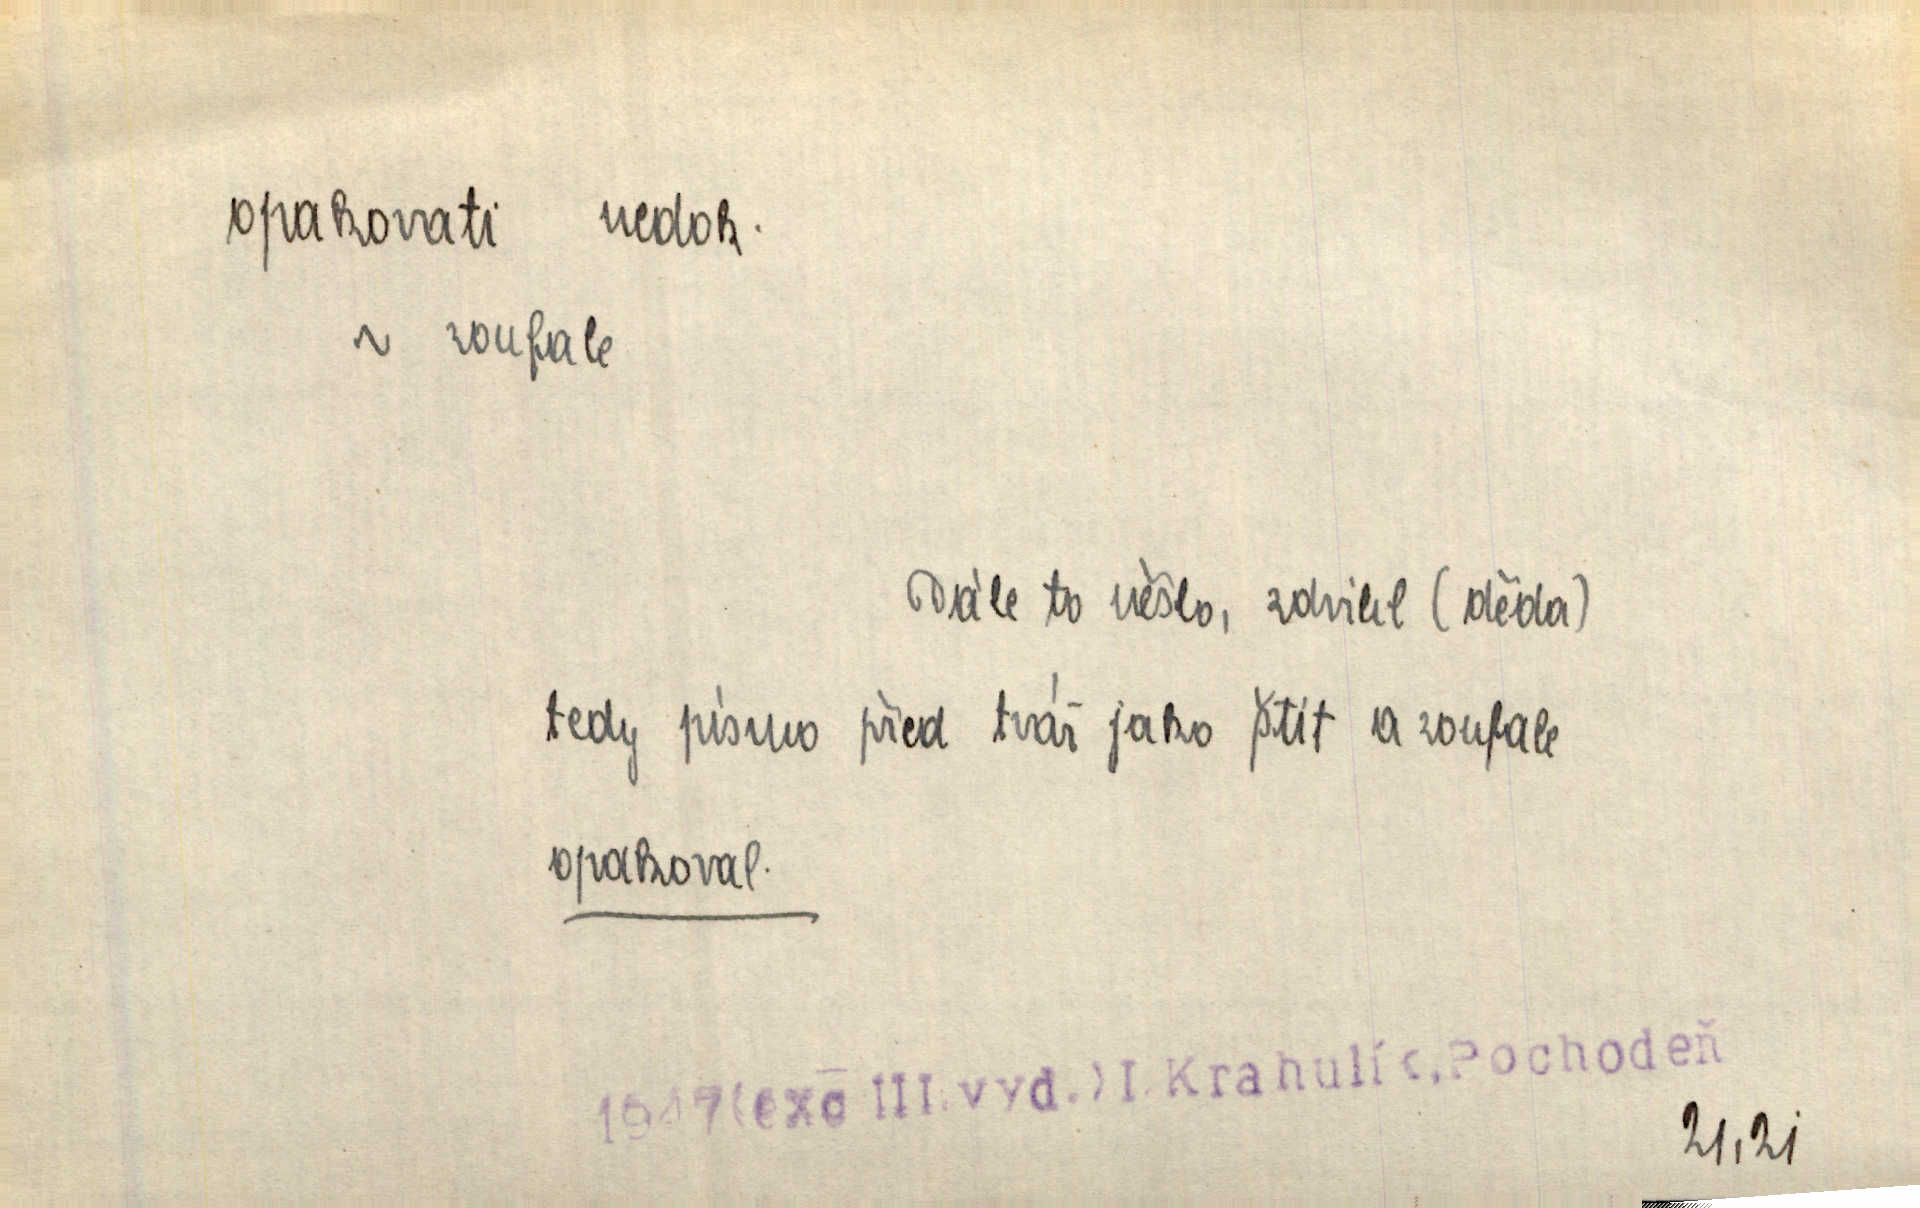 opakovati nedok.
~ zoufale
Dále to nešlo, zdvihl (děda)
tedy písmo před tvář jako štít a zoufale
opakoval.
1947(exc III.vyd.)I.Krahulík,Pochodeň
21,21